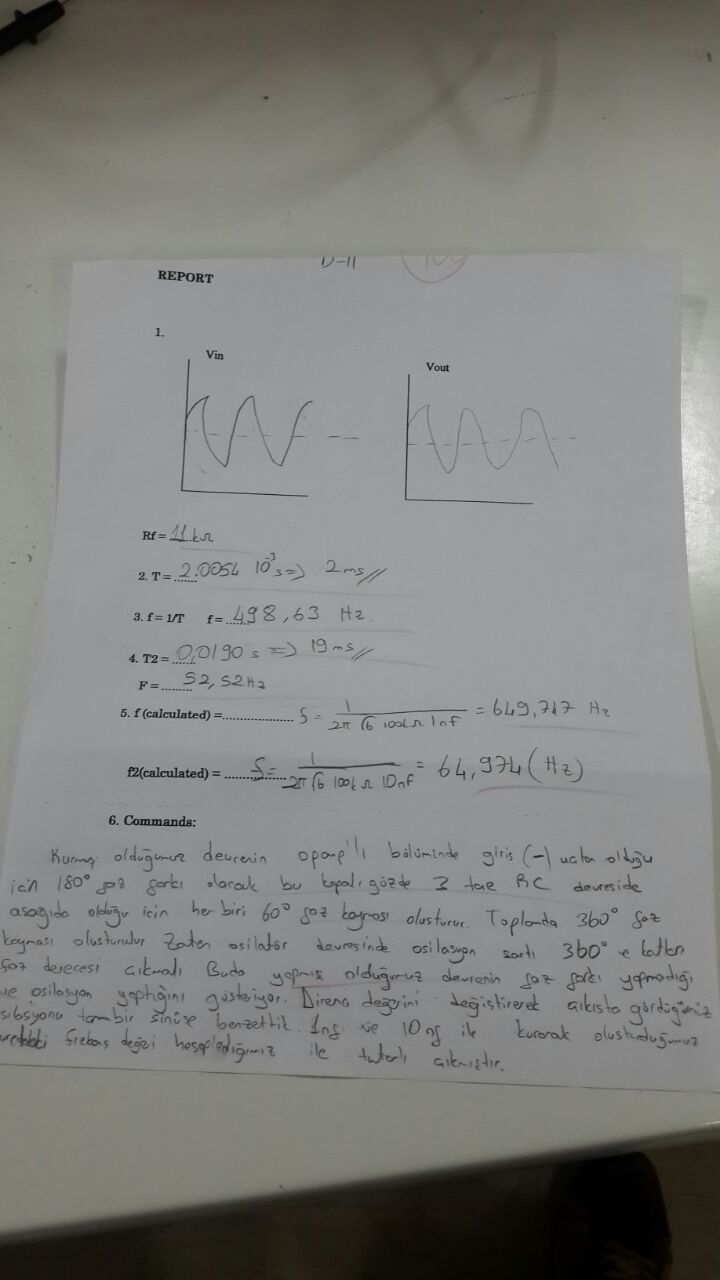 D-11
100
REPORT
1.
Vin
Vout
Rf = 11kΩ
2. T = 2.0054 10⁻³ s => 2 ms //
3. f = 1/T f = 498,63 Hz.
4. T2 = 0,0190 s => 19 ms //
F = 52,52 Hz
5. f (calculated) = f = 1 / 2π √6 100kΩ 1nF = 649,747 Hz
f2(calculated) = f = 1 / 2π √6 100kΩ 10nF = 64,974 (Hz)
6. Commands:
Kurmuş olduğumuz devrenin opamp'lı bölüminde giris (-) uctan olduğu
için 180° faz farkı olacak bu kapalı gözde 3 tane RC devreside
aşağıda olduğu için her biri 60° faz kayması olusturur. Toplamda 360° faz
kayması olusturulur. Zaten osilatör devresinde osilasyon sartı 360° ve katları
faz derecesi cıkmalı Buda yapmış olduğumuz devrenin faz farkı yapmadığı
ve osilasyon yaptığını gösteriyor. Direnc değerini değiştirerek cıkısta gördüğümüz
tam bir sinüse benzettik. 1nf ve 10nf ile kurarak olusturduğumuz
frekans değeri hesapladığımız ile tutarlı cıkmıştır.